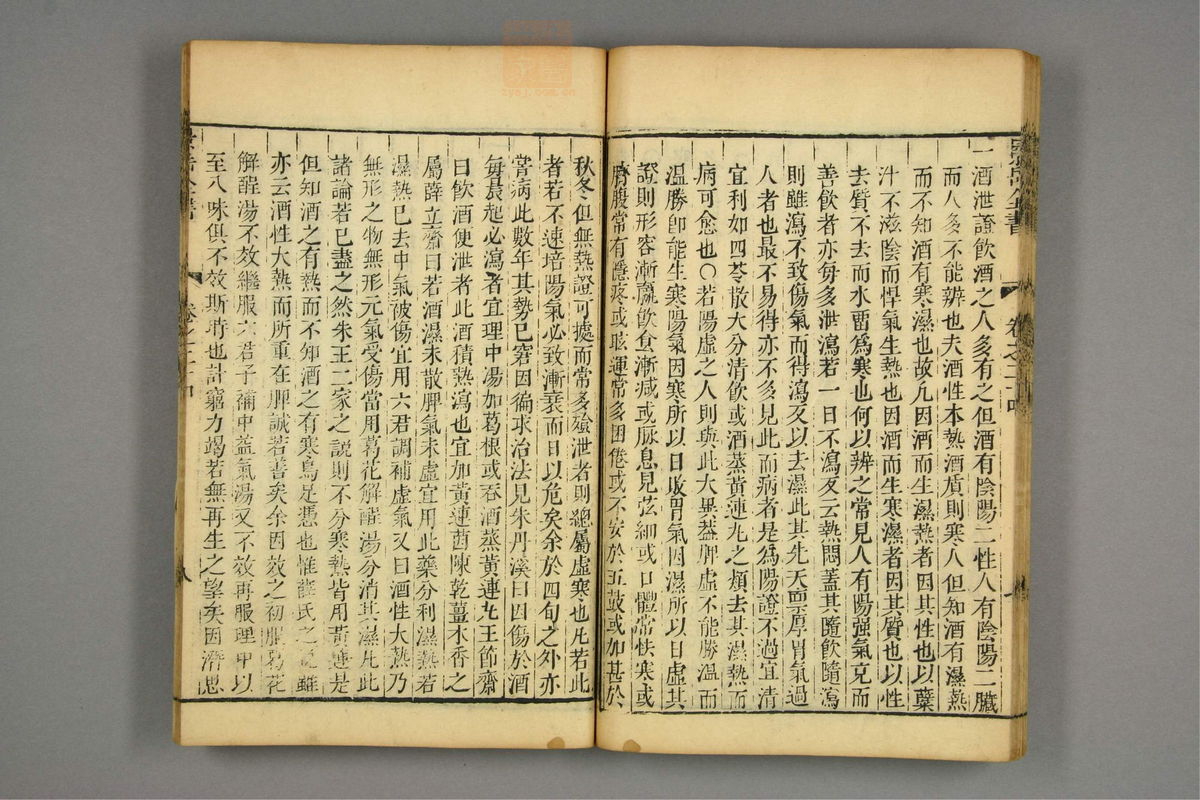 一酒泄證飲酒之人多有之但酒有陰陽二性人有陰陽二臟
而人多不能辨也夫酒性本熱酒質則寒人但知酒有濕熱
而不知酒有寒濕也故凡因酒而生濕熱者因其性也以蘗
汁不滋陰而悍氣生熱也因酒而生寒濕者因其質也以性
去質不去而水畱爲寒也何以辨之常見人有陽强氣充而
善飲者亦每多泄瀉若一日不瀉反云熱悶蓋其隨飲隨瀉
則雖瀉不致傷氣而得瀉反以去濕此其先天稟厚胃氣過
人者也最不易得亦不多見此而病者是爲陽證不過宜清
宜利如四苓散大分清飲或酒蒸黃連丸之類去其濕熱而
病可愈也〇若陽虛之人則與此大異蓋脾虛不能勝濕而
濕勝卽能生寒陽氣因寒所以日敗胃氣因濕所以日虛其
證則形容漸羸飲食漸減或脉息見弦細或口體常怯寒或
臍腹常有隱疼或眩運常多困倦或不安於五鼓或加甚於
卷之二十四
秋冬但無熱證可據而常多飱泄者則總屬虛寒也凡若此
者若不速培陽氣必致漸衰而日以危矣余於四旬之外亦
嘗病此數年其勢已窘因徧求治法見朱丹溪曰因傷於酒
每晨起必瀉者宜理中湯加葛根或吞酒蒸黃連丸王節齋
曰飲酒便泄者此酒積熱瀉也宜加黃連茵陳乾薑木香之
屬薛立齋曰若酒濕未散脾氣未虛宜用此藥分利濕熱若
濕熱已去中氣被傷宜用六君調補虛氣又曰酒性大熱乃
無形之物無形元氣受傷當用葛花解酲湯分消其濕凡此
諸論若已盡之然朱王二家之說則不分寒熱皆用黃連是
但知酒之有熱而不知酒之有寒烏足憑也惟薛氏之說雖
亦云酒性大熱而所重在脾誠若善矣余因效之初服葛花
解酲湯不效繼服六君子補中益氣湯又不效再服理中以
至八味俱不效斯時也計窮力竭若無再生之望矣因潛思
八